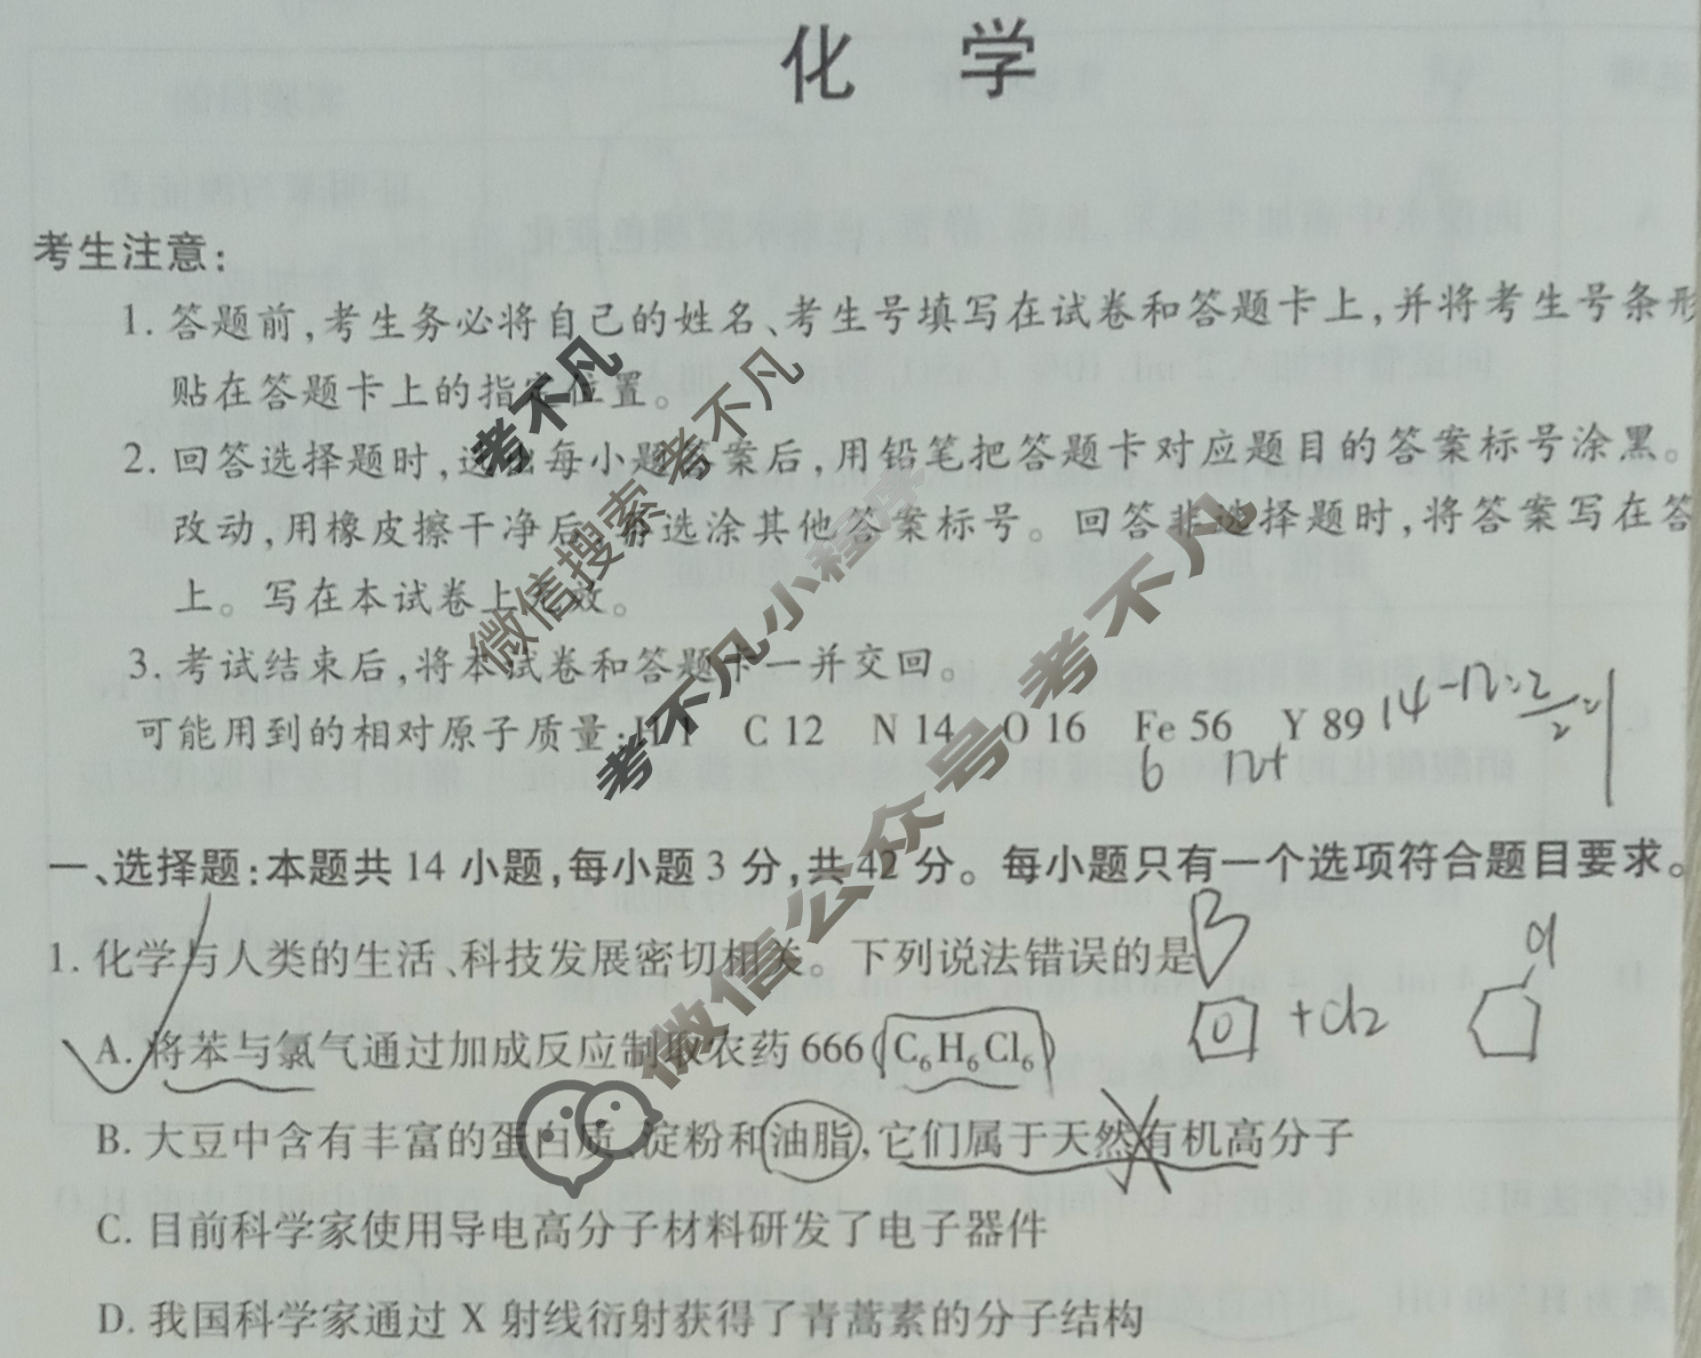 化 学
考生注意:
1. 答题前,考生务必将自己的姓名、考生号填写在试卷和答题卡上,并将考生号条形
贴在答题卡上的指定位置。
2. 回答选择题时,选出每小题答案后,用铅笔把答题卡对应题目的答案标号涂黑。
改动,用橡皮擦干净后,再选涂其他答案标号。回答非选择题时,将答案写在答
上。写在本试卷上无效。
3. 考试结束后,将本试卷和答题卡一并交回。
可能用到的相对原子质量:H 1 C 12 N 14 O 16 Fe 56 Y 89
一、选择题:本题共 14 小题,每小题 3 分,共 42 分。每小题只有一个选项符合题目要求。
1. 化学与人类的生活、科技发展密切相关。下列说法错误的是 B
A. 将苯与氯气通过加成反应制取农药 666(C₆H₆Cl₆)
+Cl₂
Cl
B. 大豆中含有丰富的蛋白质、淀粉和油脂,它们属于天然有机高分子
C. 目前科学家使用导电高分子材料研发了电子器件
D. 我国科学家通过 X 射线衍射获得了青蒿素的分子结构
考不凡
微信搜索 考不凡
考不凡小程序
微信公众号 考不凡